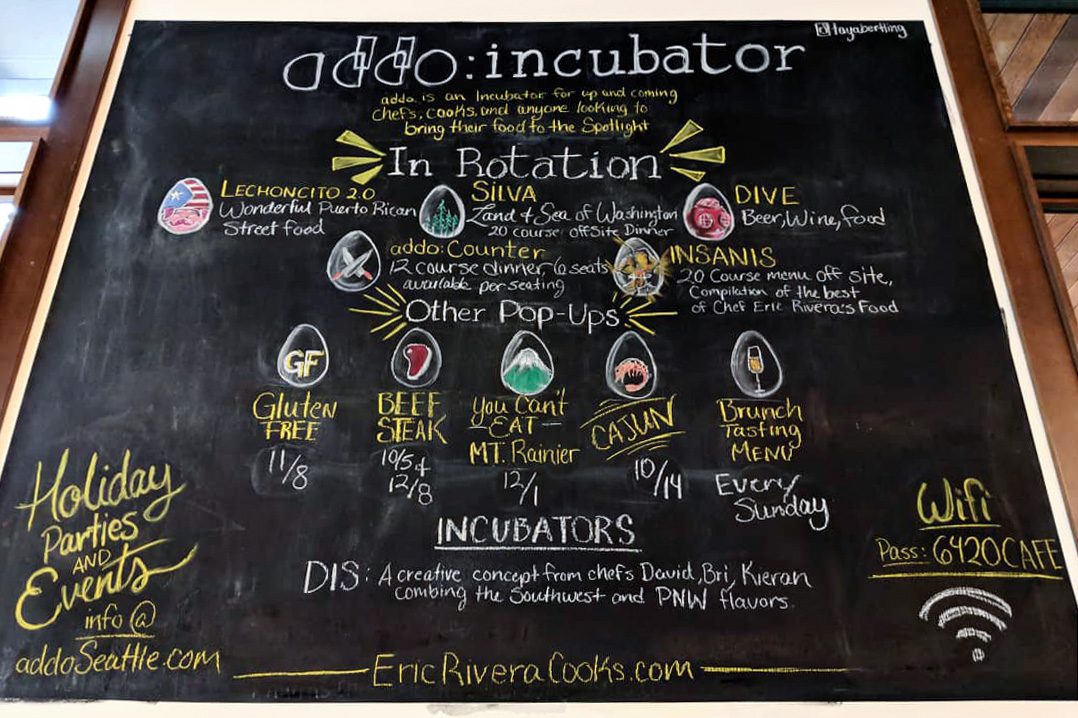 @tayabertling
addo:incubator
addo is an Incubator for up and coming
chefs, cooks, and anyone looking to
bring their food to the Spotlight
In Rotation
LECHONCITO 2.0
Wonderful Puerto Rican
Street food
SILVA
Land & Sea of Washington
20 course off Site Dinner
DIVE
Beer, Wine, food
addo:Counter
12 course dinner, 6 seats
available per seating
INSANIS
20 Course menu off site,
Compilation of the best
of Chef Eric Rivera's Food
Other Pop-Ups
GF
Gluten
FREE
11/8
BEEF
STEAK
10/5 &
12/8
You Can't
EAT
MT. Rainier
12/1
CAJUN
10/14
Brunch
Tasting
MENU
Every
Sunday
INCUBATORS
DIS: A creative concept from chefs David, Bri, Kieran
combing the Southwest and PNW flavors.
Holiday
Parties
AND
Events
info @
addoSeattle.com
Wifi
Pass: 6420CAFE
EricRiveraCooks.com